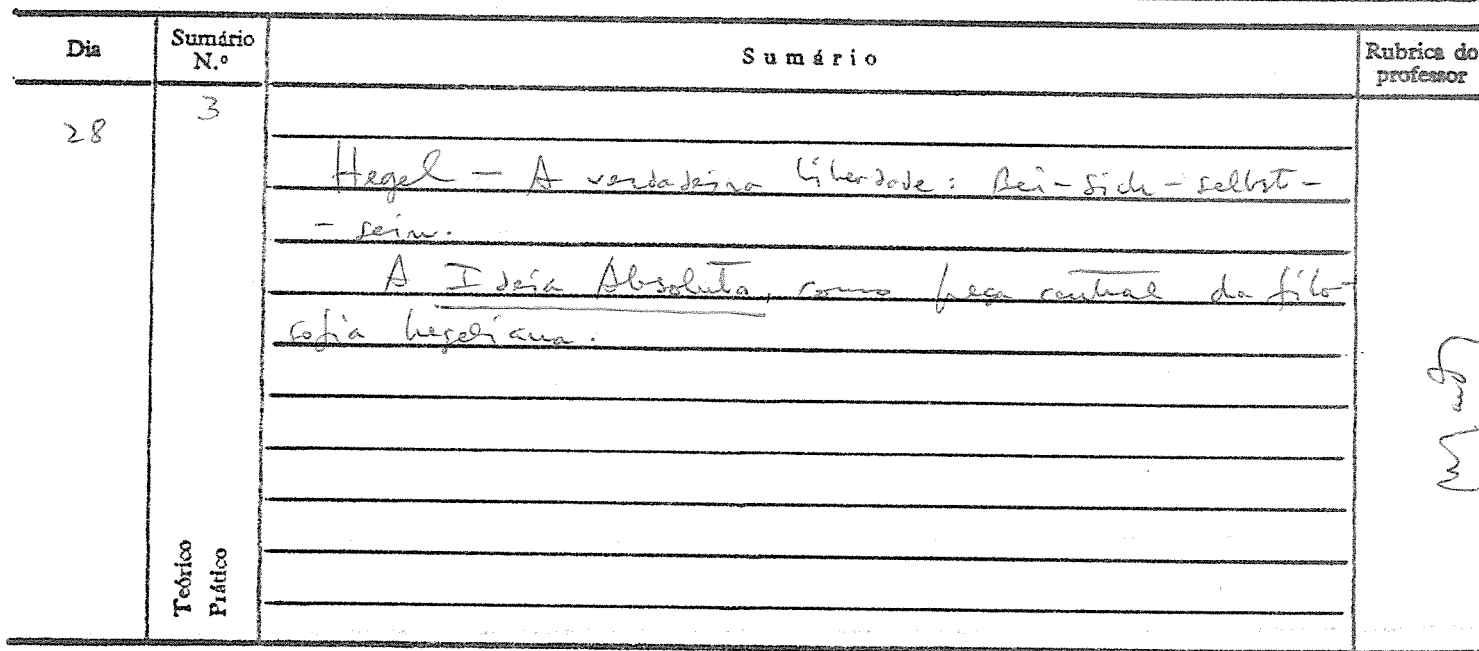 Dia
Sumário N.º
Sumário
Rubrica do professor
28
3
Hegel — A verdadeira liberdade: Bei-sich-selbst-
- sein.
A Ideia Absoluta, como peça central da filo-
sofia hegeliana.
Teórico
Prático